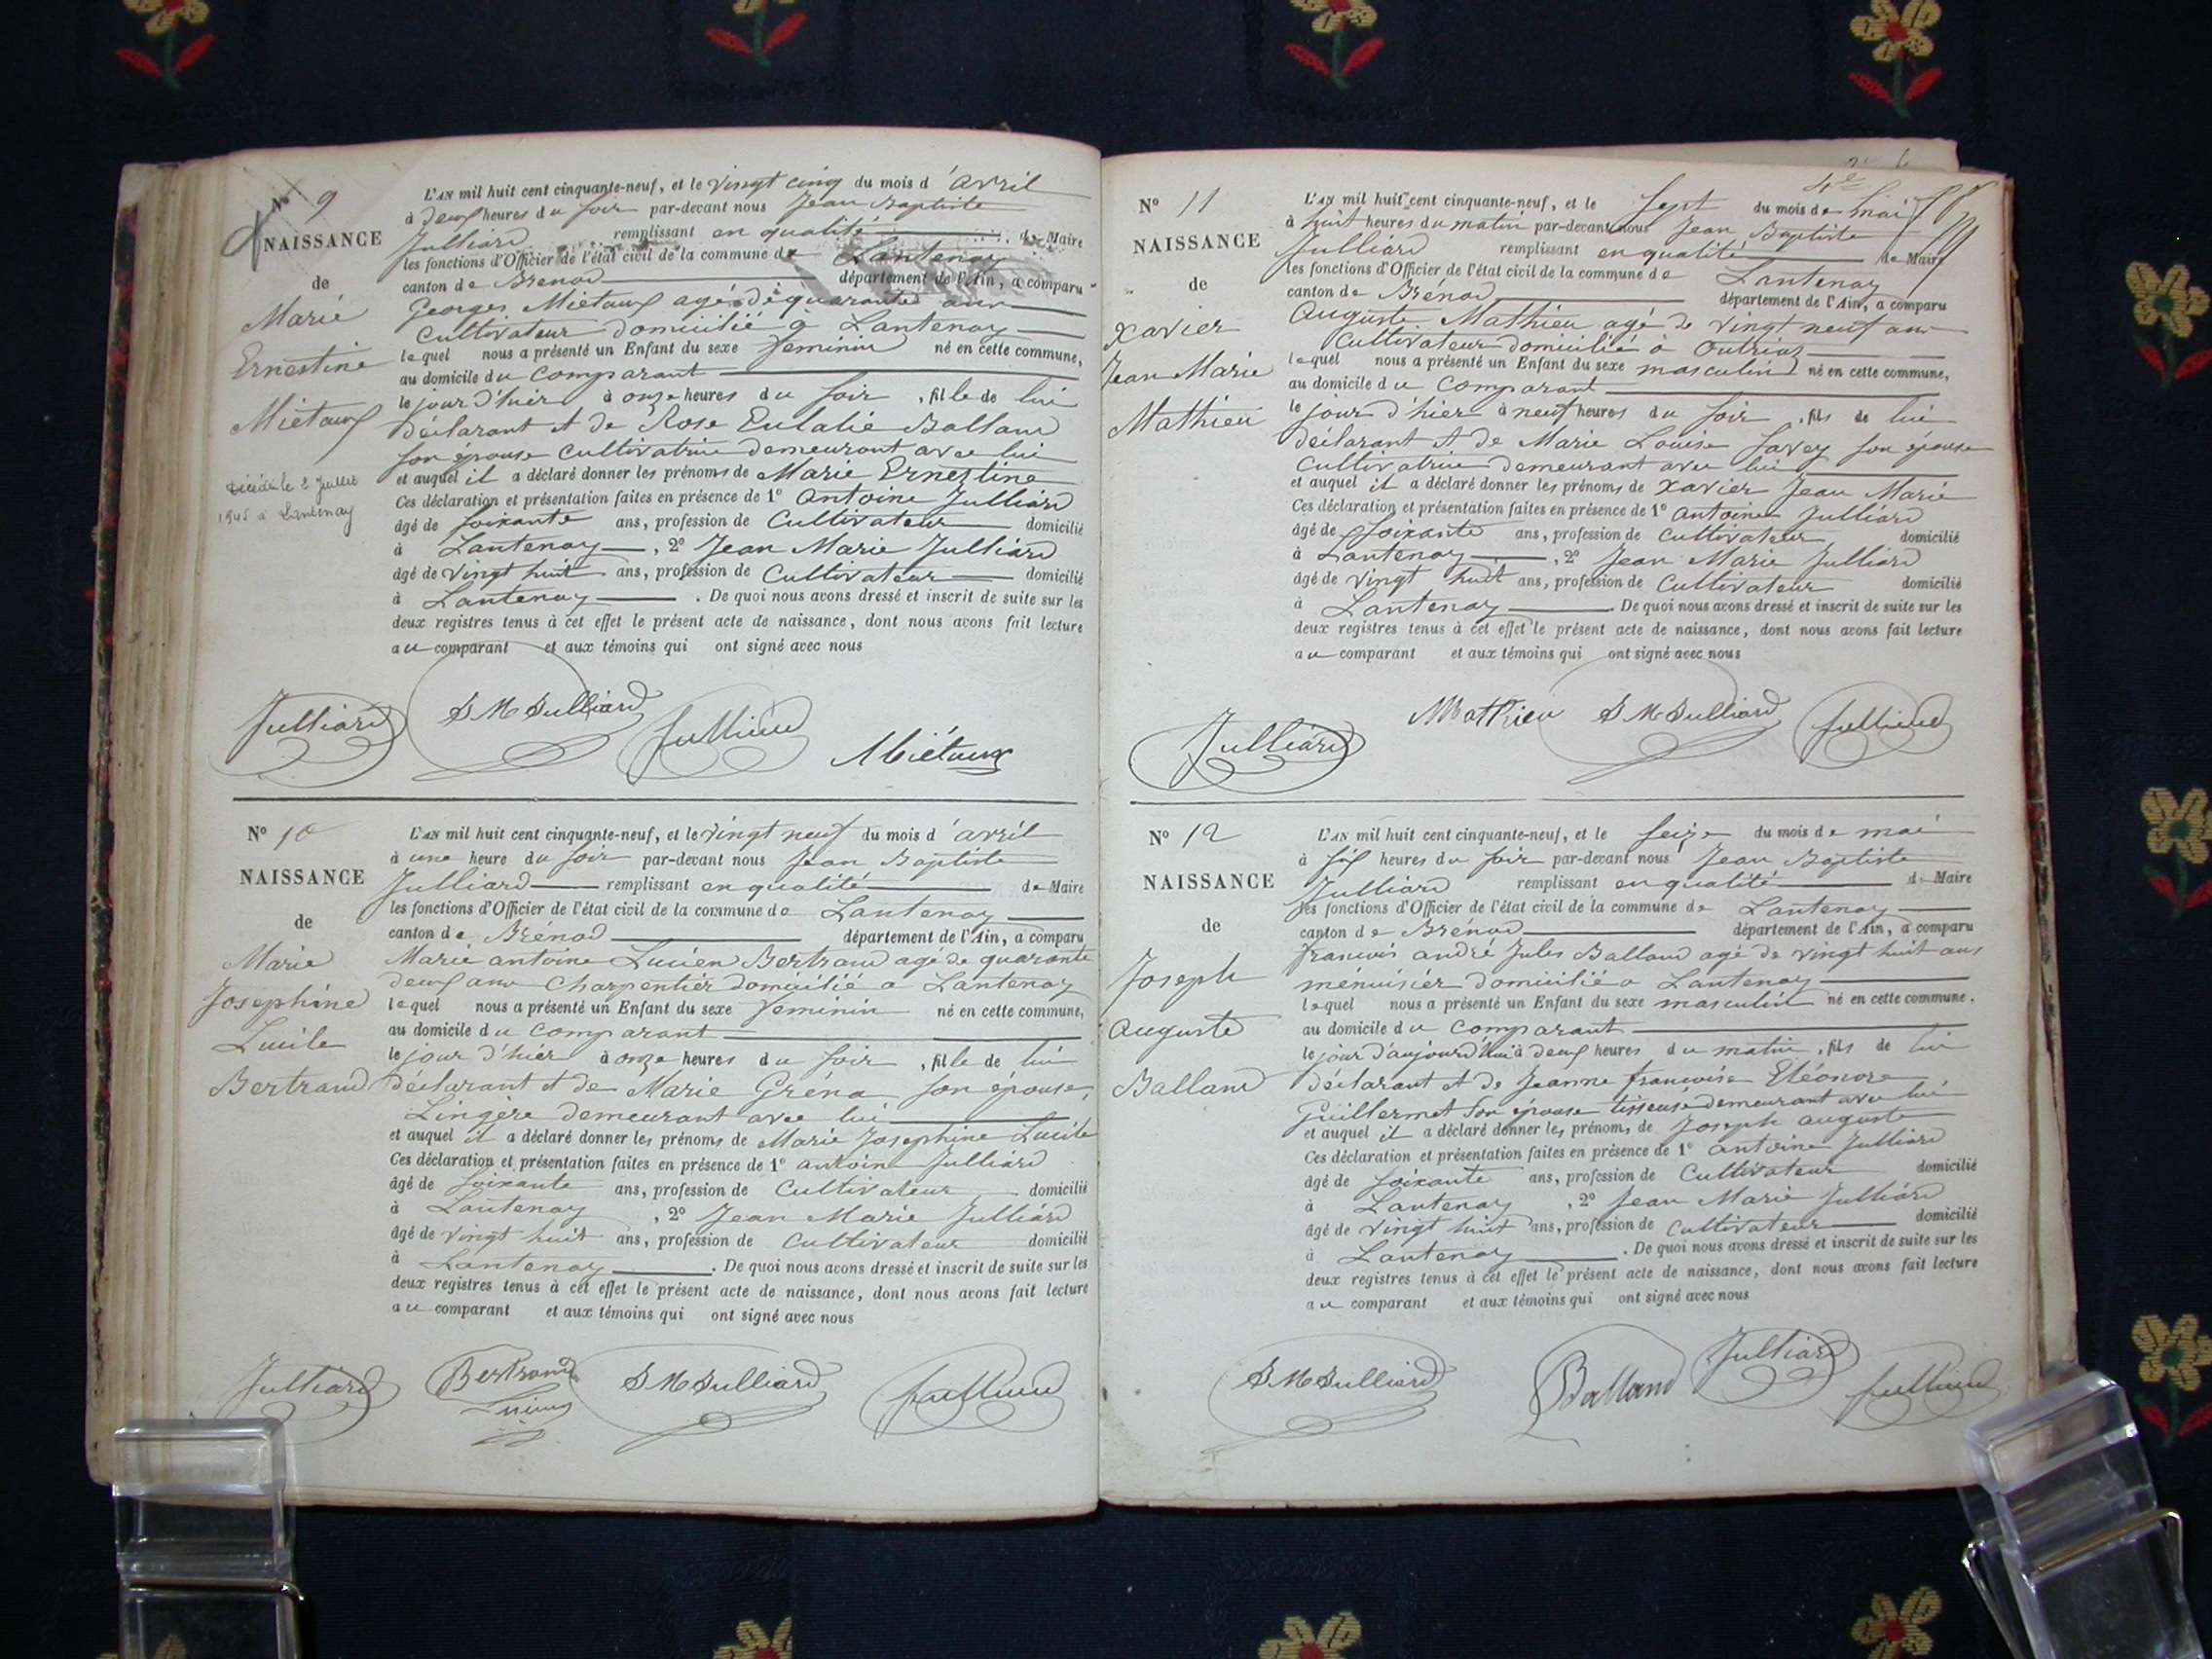 N° 9
NAISSANCE
de
Marie
Ernestine
Miétaux
Décédée le 2 Juillet
1945 à Lantenay
L'AN mil huit cent cinquante-neuf, et le vingt cinq du mois d'avril
à deux heures du soir par-devant nous Jean Baptiste
Julliard remplissant en qualité de Maire
les fonctions d'Officier de l'état civil de la commune de Lantenay
canton de Brenod département de l'Ain, a comparu
Georges Miétaux agé de quarante ans
Cultivateur domicilié à Lantenay
lequel nous a présenté un Enfant du sexe feminin né en cette commune,
au domicile du comparant
le jour d'hier à onze heures du soir, fille de lui
déclarant et de Rose Eulalie Balland
son épouse cultivatrice demeurant avec lui
et auquel il a déclaré donner les prénoms de Marie Ernestine
Ces déclaration et présentation faites en présence de 1° antoine Julliard
âgé de soixante ans, profession de Cultivateur domicilié
à Lantenay, 2° Jean Marie Julliard
âgé de vingt huit ans, profession de Cultivateur domicilié
à Lantenay. De quoi nous avons dressé et inscrit de suite sur les
deux registres tenus à cet effet le présent acte de naissance, dont nous avons fait lecture
au comparant et aux témoins qui ont signé avec nous
Julliard J M Julliard Julliard Miétaux
N° 10
NAISSANCE
de
Marie
Josephine
Lucile
Bertrand
L'AN mil huit cent cinquante-neuf, et le vingt neuf du mois d'avril
à une heure du soir par-devant nous Jean Baptiste
Julliard remplissant en qualité de Maire
les fonctions d'Officier de l'état civil de la commune de Lantenay
canton de Brénod département de l'Ain, a comparu
Marie antoine Lucien Bertrand agé de quarante
deux ans Charpentier domicilié a Lantenay
lequel nous a présenté un Enfant du sexe feminin né en cette commune,
au domicile du comparant
le jour d'hier à onze heures du soir, fille de lui
déclarant et de Marie Gréna son épouse,
Lingère demeurant avec lui
et auquel il a déclaré donner les prénoms de Marie Josephine Lucile
Ces déclaration et présentation faites en présence de 1° antoine Julliard
âgé de soixante ans, profession de Cultivateur domicilié
à Lantenay, 2° Jean Marie Julliard
âgé de vingt huit ans, profession de Cultivateur domicilié
à Lantenay. De quoi nous avons dressé et inscrit de suite sur les
deux registres tenus à cet effet le présent acte de naissance, dont nous avons fait lecture
au comparant et aux témoins qui ont signé avec nous
Julliard Bertrand Lucien J M Julliard Julliard
N° 11
NAISSANCE
de
Xavier
Jean Marie
Mathieu
L'AN mil huit cent cinquante-neuf, et le sept du mois de mai
à huit heures du matin par-devant nous Jean Baptiste
Julliard remplissant en qualité de Maire
les fonctions d'Officier de l'état civil de la commune de Lantenay
canton de Brénod département de l'Ain, a comparu
Auguste Mathieu agé de vingt neuf ans
Cultivateur domicilié à Outriaz
lequel nous a présenté un Enfant du sexe masculin né en cette commune,
au domicile du comparant
le jour d'hier à neuf heures du soir, fils de lui
déclarant et de Marie Louise Savey son épouse
cultivatrice demeurant avec lui
et auquel il a déclaré donner les prénoms de Xavier Jean Marie
Ces déclaration et présentation faites en présence de 1° antoine Julliard
âgé de soixante ans, profession de Cultivateur domicilié
à Lantenay, 2° Jean Marie Julliard
âgé de vingt huit ans, profession de Cultivateur domicilié
à Lantenay. De quoi nous avons dressé et inscrit de suite sur les
deux registres tenus à cet effet le présent acte de naissance, dont nous avons fait lecture
au comparant et aux témoins qui ont signé avec nous
Julliard Mathieu J M Julliard Julliard
N° 12
NAISSANCE
de
Joseph
auguste
Balland
L'AN mil huit cent cinquante-neuf, et le seize du mois de mai
à six heures du soir par-devant nous Jean Baptiste
Julliard remplissant en qualité de Maire
les fonctions d'Officier de l'état civil de la commune de Lantenay
canton de Brenod département de l'Ain, a comparu
françois andré Jules Balland agé de vingt huit ans
ménuisier domicilié a Lantenay
lequel nous a présenté un Enfant du sexe masculin né en cette commune,
au domicile du comparant
le jour d'aujourd'hui à deux heures du matin, fils de lui
déclarant et de Jeanne françoise Eléonore
Guillermet son épouse tisseuse demeurant avec lui
et auquel il a déclaré donner les prénoms de Joseph auguste
Ces déclaration et présentation faites en présence de 1° antoine Julliard
âgé de soixante ans, profession de Cultivateur domicilié
à Lantenay, 2° Jean Marie Julliard
âgé de vingt huit ans, profession de Cultivateur domicilié
à Lantenay. De quoi nous avons dressé et inscrit de suite sur les
deux registres tenus à cet effet le présent acte de naissance, dont nous avons fait lecture
au comparant et aux témoins qui ont signé avec nous
J M Julliard Balland Julliard Julliard